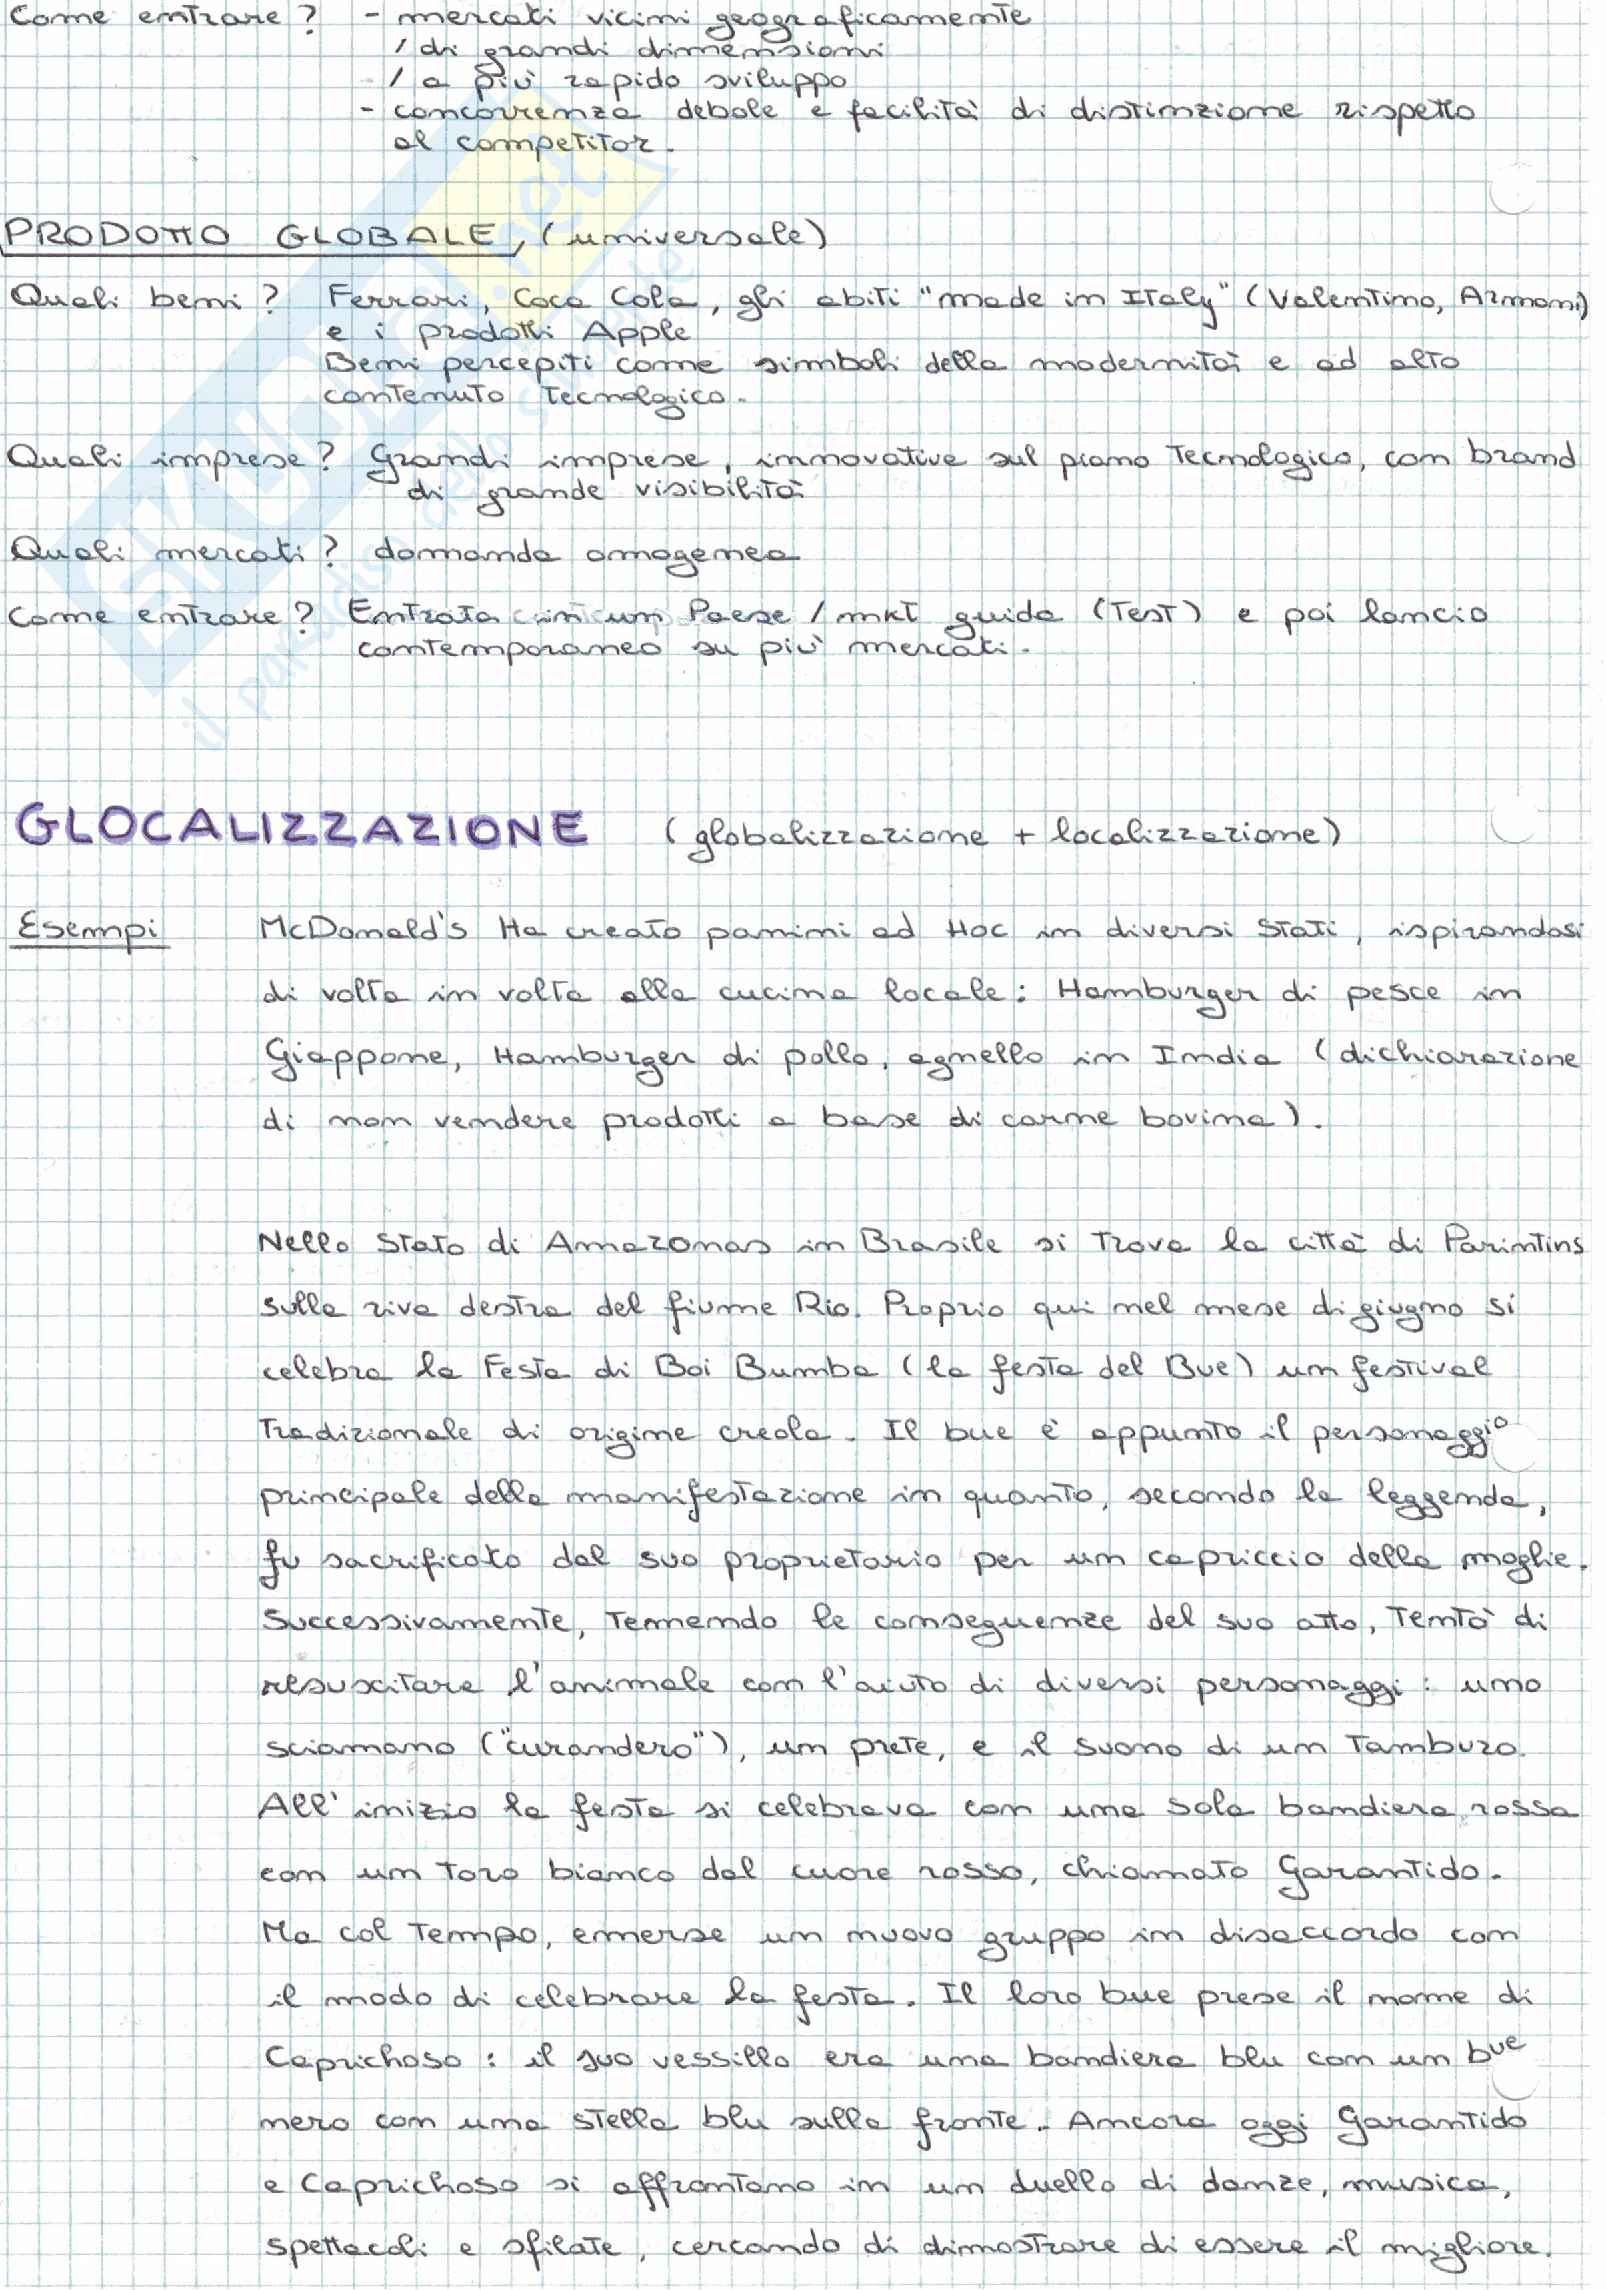 Come entrare ? - mercati vicini geograficamente
/ di grandi dimensioni
/ a più rapido sviluppo
- concorrenza debole e facilità di distinzione rispetto
al competitor.
PRODOTTO GLOBALE, (universale)
Quali beni ? Ferrari, Coca Cola, gli abiti "made in Italy" (Valentino, Armani)
e i prodotti Apple
Beni percepiti come simboli della modernità e ad alto
contenuto tecnologico.
Quali imprese ? Grandi imprese, innovative sul piano tecnologico, con brand
di grande visibilità
Quali mercati ? domanda omogenea
Come entrare ? Entrata in un Paese / mkt guida (test) e poi lancio
contemporaneo su più mercati.
GLOCALIZZAZIONE (globalizzazione + localizzazione)
Esempi McDonald's Ha creato panini ad Hoc in diversi Stati, ispirandosi
di volta in volta alla cucina locale : Hamburger di pesce in
Giappone, Hamburger di pollo, agnello in India (dichiarazione
di non vendere prodotti a base di carne bovina).
Nello Stato di Amazonas in Brasile si trova la città di Parintins
sulla riva destra del fiume Rio. Proprio qui nel mese di giugno si
celebra la Festa di Boi Bumba (la festa del Bue) un festival
tradizionale di origine creola. Il bue è appunto il personaggio
principale della manifestazione in quanto, secondo la leggenda,
fu sacrificato dal suo proprietario per un capriccio della moglie.
Successivamente, temendo le conseguenze del suo atto, tentò di
resuscitare l'animale con l'aiuto di diversi personaggi : uno
sciamano ("curandero"), un prete, e il suono di un tamburo.
All' inizio la festa si celebrava con una sola bandiera rossa
con un toro bianco dal cuore rosso, chiamato Garantido.
Ma col tempo, emerse un nuovo gruppo in disaccordo con
il modo di celebrare la festa. Il loro bue prese il nome di
Caprichoso : il suo vessillo era una bandiera blu con un bue
nero con una stella blu sulla fronte. Ancora oggi Garantido
e Caprichoso si affrontano in un duello di danze, musica,
spettacoli e sfilate, cercando di dimostrare di essere il migliore.